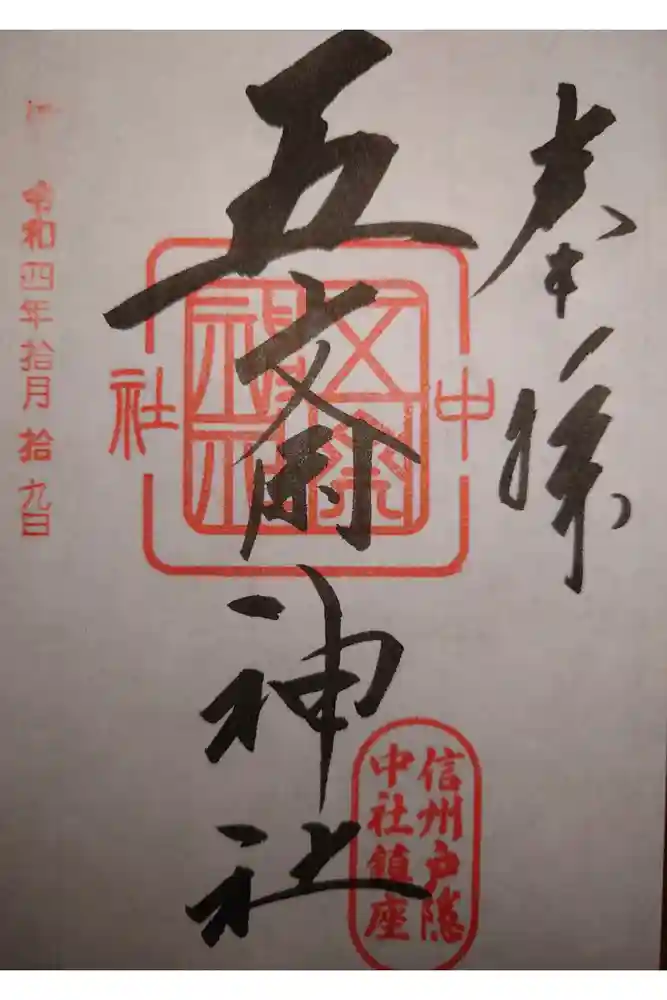 奉拝
五斎神社
中
社
信州戸隠
中社鎮座
令和四年拾月拾九日